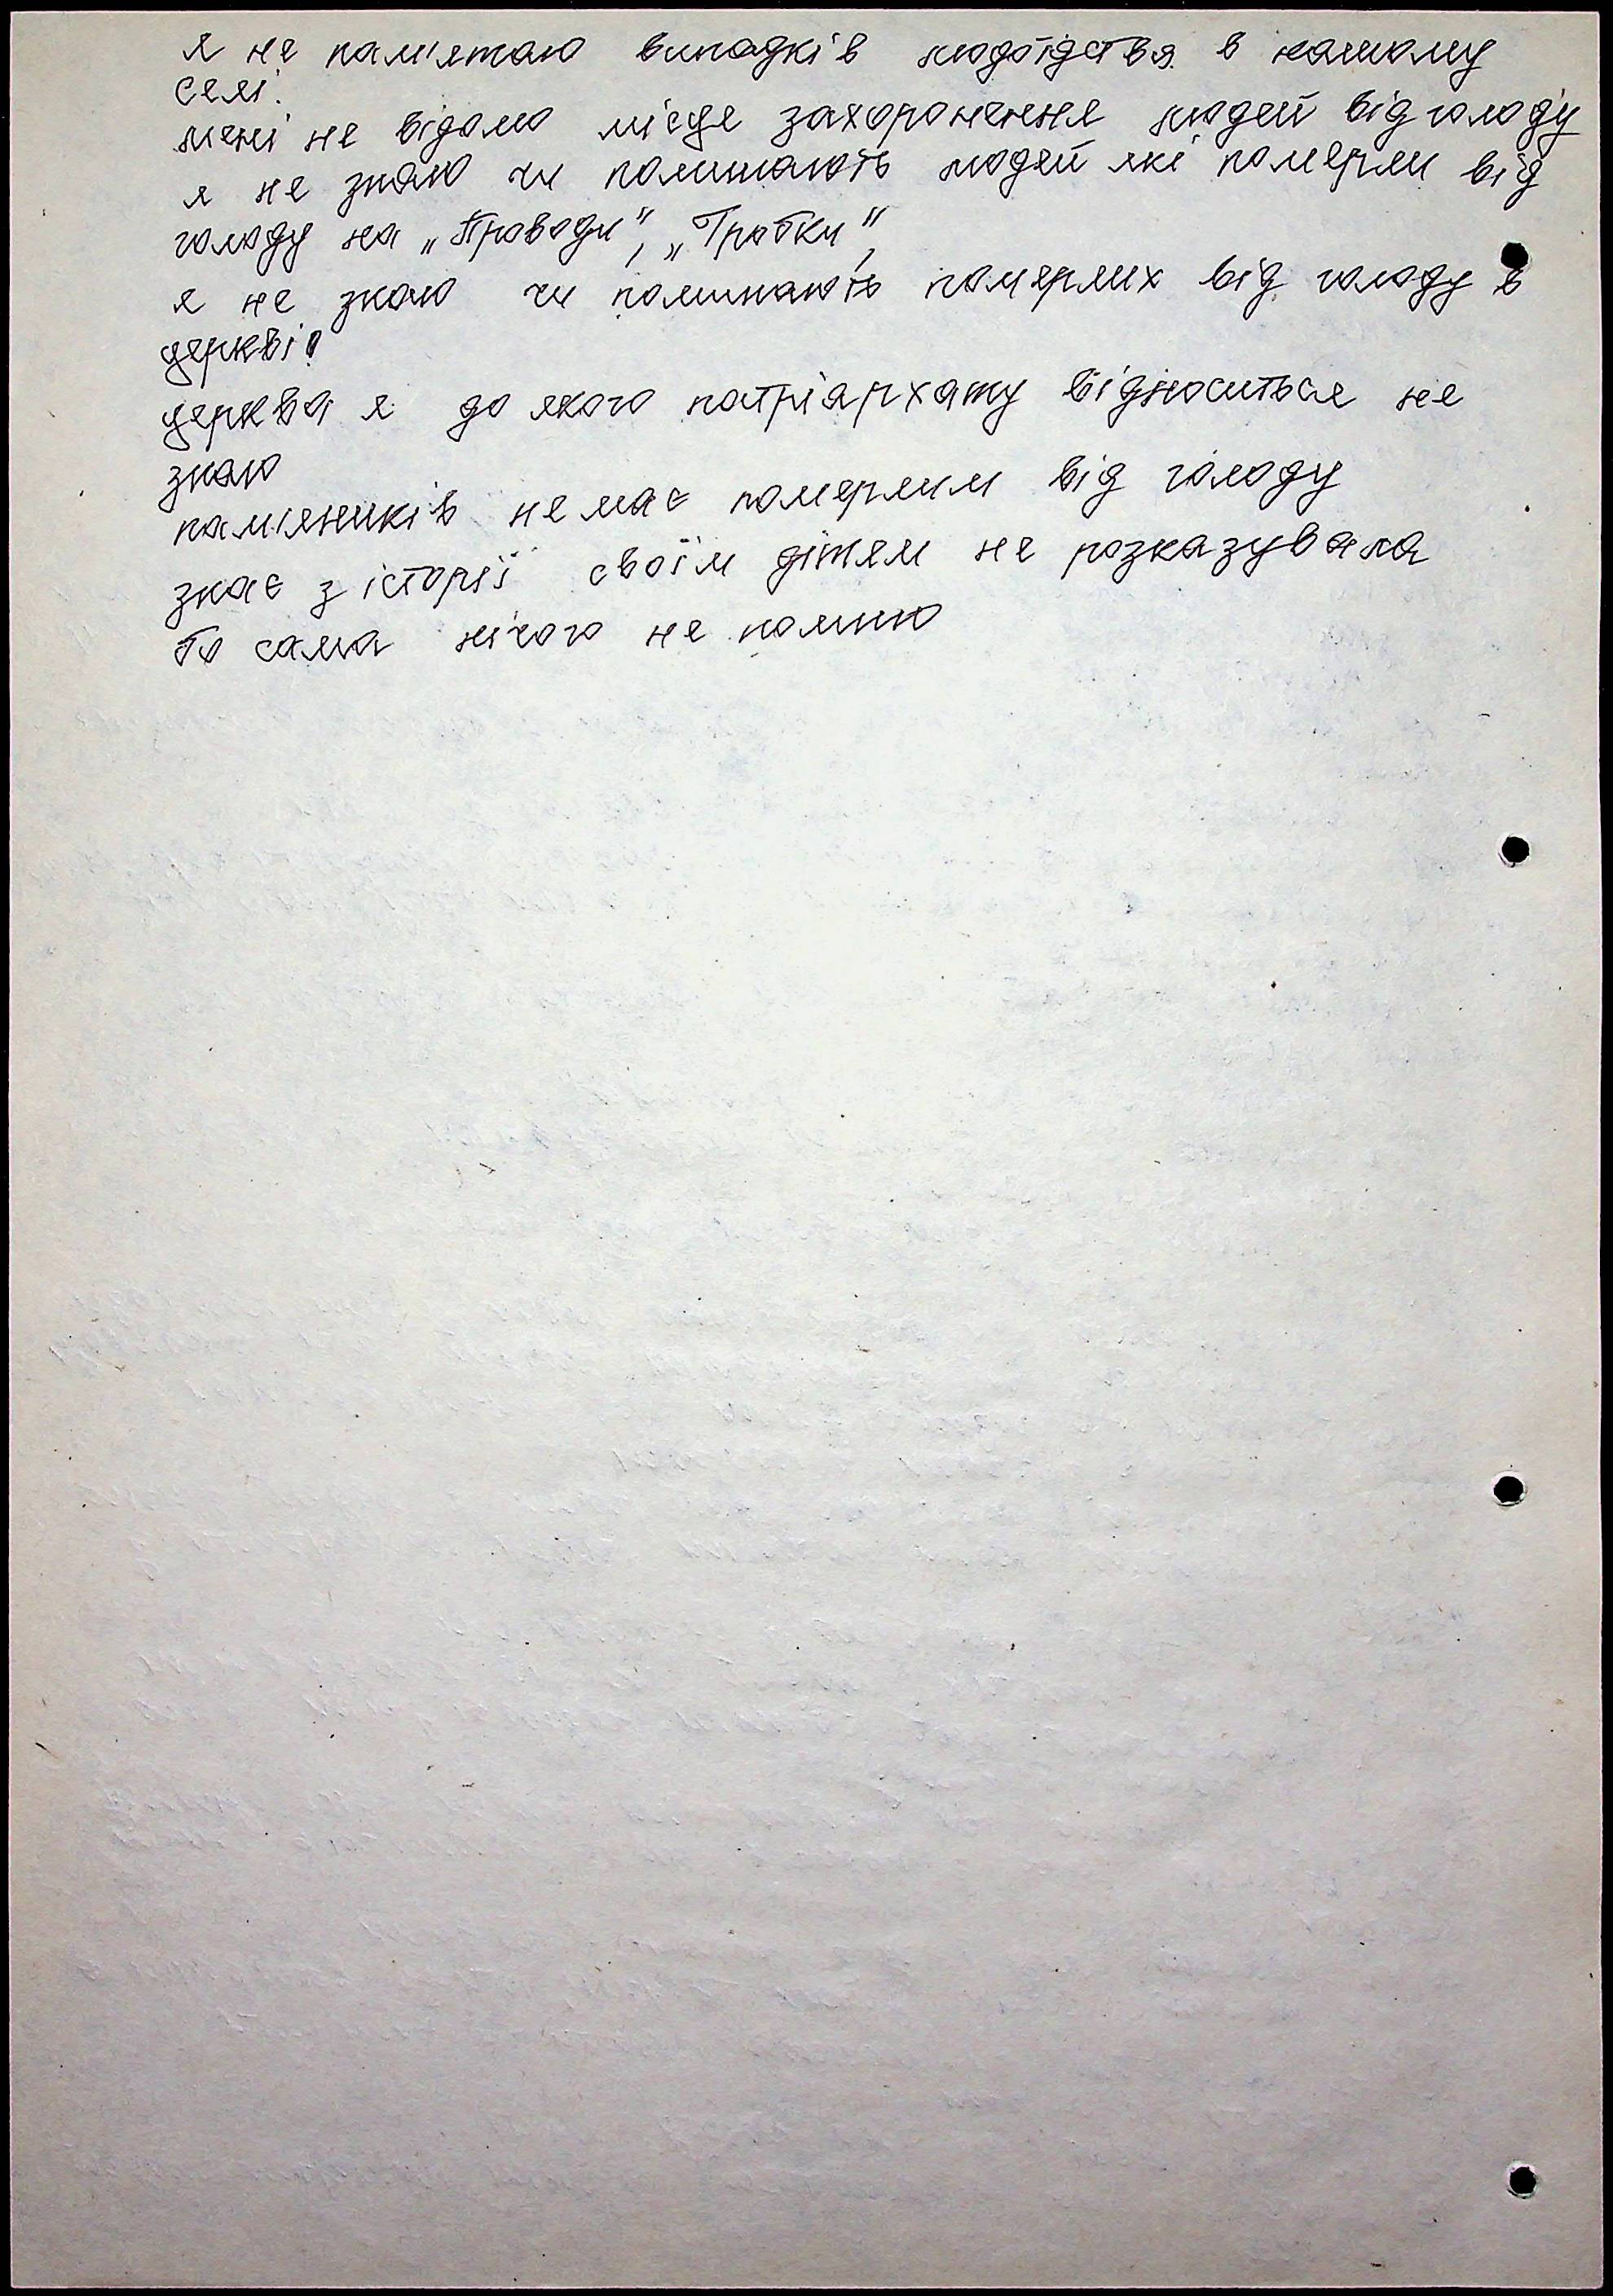 я не пам'ятаю випадків людоїдства в нашому
селі.
мені не відомо місце захоронення людей від голоду
я не знаю чи поминають людей які померли від
голоду на „Проводи", „Гробки",
я не знаю чи поминають померлих від голоду в
церкві.
церква є до якого патріархату відноситься не
знаю
пам'яників немає померлим від голоду
знає з історії своїм дітям не розказувала
бо сама нічого не помню